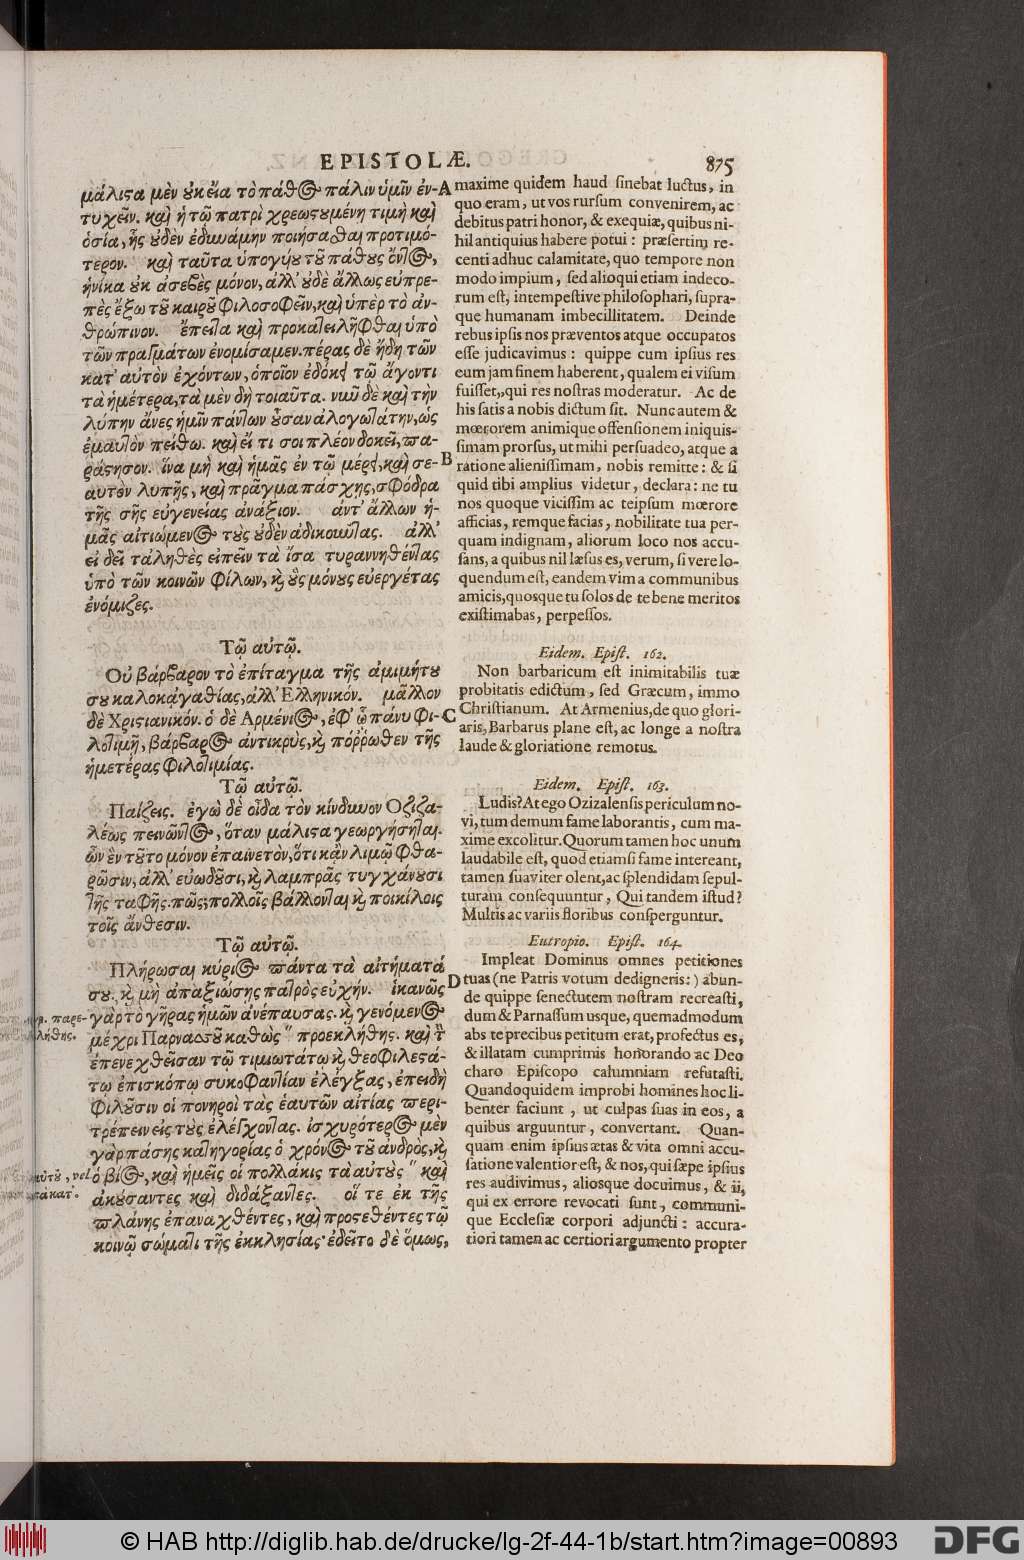 EPISTOLÆ.
875
μάλιϛα μὲν ȣ̓κ εἴα τὸ πάθος πάλιν ὑμῖν ἐν-
τυχεῖν. καὶ ἡ τῷ πατρὶ χρεωϛȣμένη τιμὴ καὶ
ὁσία, ἧς ȣ̓δὲν ἐδυνάμην ποιήσασθαι προτιμό-
τερον. καὶ ταῦτα ὑπογύȣ τȣ͂ πάθȣς ὄντος,
ἡνίκα ȣ̓κ ἀσεβὲς μόνον, ἀλλ' ȣ̓δὲ ἄλλως εὐπρε-
πὲς ἔξω τȣ͂ καιρȣ͂ φιλοσοφεῖν, καὶ ὑπὲρ τὸ ἀν-
θρώπινον. ἔπειτα καὶ προκατειλῆφθαι ὑπὸ
τῶν πραγμάτων ἐνομίσαμεν. πέρας δὲ ἤδη τῶν
κατ' αὐτὸν ἐχόντων, ὁποῖον ἐδόκει τῷ ἄγοντι
τὰ ἡμέτερα, τὰ μὲν δὴ τοιαῦτα. νῦν δὲ καὶ τὴν
λύπην ἄνες ἡμῖν πάντων ȣ̓͂σαν ἀλογωτάτην, ὡς
ἐμαυτὸν πείθω. καὶ εἴ τι σοι πλέον δοκεῖ, πα-
ράϛησον. ἵνα μὴ καὶ ἡμᾶς ἐν τῷ μέρει, καὶ σε-
αυτὸν λυπῇς, καὶ πρᾶγμα πάσχῃς, σφόδρα
τῆς σῆς εὐγενείας ἀνάξιον. ἀντ' ἄλλων ἡ-
μᾶς αἰτιώμενος τȣ̀ς ȣ̓δὲν ἀδικοῦντας. ἀλλ'
εἰ δεῖ τἀληθὲς εἰπεῖν τὰ ἴσα τυραννηθέντας
ὑπὸ τῶν κοινῶν φίλων, κỳ ȣ̔̀ς μόνȣς εὐεργέτας
ἐνόμιζες.
Τῷ αὐτῷ.
Οὐ βάρβαρον τὸ ἐπίταγμα τῆς ἀμιμήτȣ
σȣ καλοκᾳγαθίας, ἀλλ' Ἑλληνικόν. μᾶλλον
δὲ Χριϛιανικόν. ὁ δὲ Ἀρμένιος, ἐφ' ᾧ πάνυ φι-
λοτιμῇ, βάρβαρος ἀντικρὺς, κỳ πόῤῥωθεν τῆς
ἡμετέρας φιλοτιμίας.
Τῷ αὐτῷ.
Παίζεις. ἐγὼ δὲ οἶδα τὸν κίνδυνον Ὀζιζα-
λέως πεινῶντος, ὅταν μάλιϛα γεωργήσηται.
ὧν ἓν τȣ͂το μόνον ἐπαινετὸν, ὅτι κᾂν λιμῷ φθα-
ρῶσιν, ἀλλ' εὐωδȣ͂σι, κỳ λαμπρᾶς τυγχάνȣσι
τῆς ταφῆς. πῶς; πολλοῖς βάλλονται κỳ ποικίλοις
τοῖς ἄνθεσιν.
Τῷ αὐτῷ.
Πληρῶσαι κύριος πάντα τὰ αἰτήματά
σȣ. κỳ μὴ ἀπαξιώσῃς πατρὸς εὐχήν. ἱκανῶς
γὰρ τὸ γῆρας ἡμῶν ἀνέπαυσας. κỳ γενόμενος
μέχρι Παρνασȣ͂ καθὼς " προεκλήθης. καὶ τ̀
ἐπενεχθεῖσαν τῷ τιμιωτάτῳ κỳ θεοφιλεϛά-
τῳ ἐπισκόπῳ συκοφαντίαν ἐλέγξας, ἐπειδὴ
φιλȣ͂σιν οἱ πονηροὶ τὰς ἑαυτῶν αἰτίας περι-
τρέπειν εἰς τȣ̀ς ἐλέγχοντας. ἰσχυρότερος μὲν
γὰρ πάσης κατηγορίας ὁ χρόνος τȣ͂ ἀνδρὸς, κỳ
ὁ βίος, καὶ ἡμεῖς οἱ πολλάκις ταὐτȣ̀ς " καὶ
ἀκȣ́σαντες καὶ διδάξαντες. οἵ τε ἐκ τῆς
πλάνης ἐπαναχθέντες, καὶ προστεθέντες τῷ
κοινῷ σώματι τῆς ἐκκλησίας· ἐδεῖτο δὲ ὅμως,
παρε-
λήθης.
αὐτȣ͂, vel
A
B
C
D
maxime quidem haud sinebat luctus, in
quo eram, ut vos rursum convenirem, ac
debitus patri honor, & exequiæ, quibus ni-
hil antiquius habere potui: præsertim re-
centi adhuc calamitate, quo tempore non
modo impium, sed alioqui etiam indeco-
rum est, intempestive philosophari, supra-
que humanam imbecillitatem. Deinde
rebus ipsis nos præventos atque occupatos
esse judicavimus: quippe cum ipsius res
eum jam finem haberent, qualem ei visum
fuisset, qui res nostras moderatur. Ac de
his satis a nobis dictum sit. Nunc autem &
mœrorem animique offensionem iniquis-
simam prorsus, ut mihi persuadeo, atque a
ratione alienissimam, nobis remitte: & si
quid tibi amplius videtur, declara: ne tu
nos quoque vicissim ac teipsum mœrore
afficias, remque facias, nobilitate tua per-
quam indignam, aliorum loco nos accu-
sans, a quibus nil læsus es, verum, si vere lo-
quendum est, eandem vim a communibus
amicis, quosque tu solos de te bene meritos
existimabas, perpessos.
Eidem. Epist. 162.
Non barbaricum est inimitabilis tuæ
probitatis edictum, sed Græcum, immo
Christianum. At Armenius, de quo glori-
aris, Barbarus plane est, ac longe a nostra
laude & gloriatione remotus.
Eidem. Epist. 163.
Ludis? At ego Ozizalensis periculum no-
vi, tum demum fame laborantis, cum ma-
xime excolitur. Quorum tamen hoc unum
laudabile est, quod etiamsi fame intereant,
tamen suaviter olent, ac splendidam sepul-
turam consequuntur, Qui tandem istud?
Multis ac variis floribus consperguntur.
Eutropio. Epist. 164.
Impleat Dominus omnes petitiones
tuas (ne Patris votum dedigneris:) abun-
de quippe senectutem nostram recreasti,
dum & Parnassum usque, quemadmodum
abs te precibus petitum erat, profectus es,
& illatam cumprimis honorando ac Deo
charo Episcopo calumniam refutasti.
Quandoquidem improbi homines hoc li-
benter faciunt, ut culpas suas in eos, a
quibus arguuntur, convertant. Quan-
quam enim ipsius ætas & vita omni accu-
satione valentior est, & nos, qui sæpe ipsius
res audivimus, aliosque docuimus, & ii,
qui ex errore revocati sunt, communi-
que Ecclesiæ corpori adjuncti: accura-
tiori tamen ac certiori argumento propter
© HAB http://diglib.hab.de/drucke/lg-2f-44-1b/start.htm?image=00893
DFG